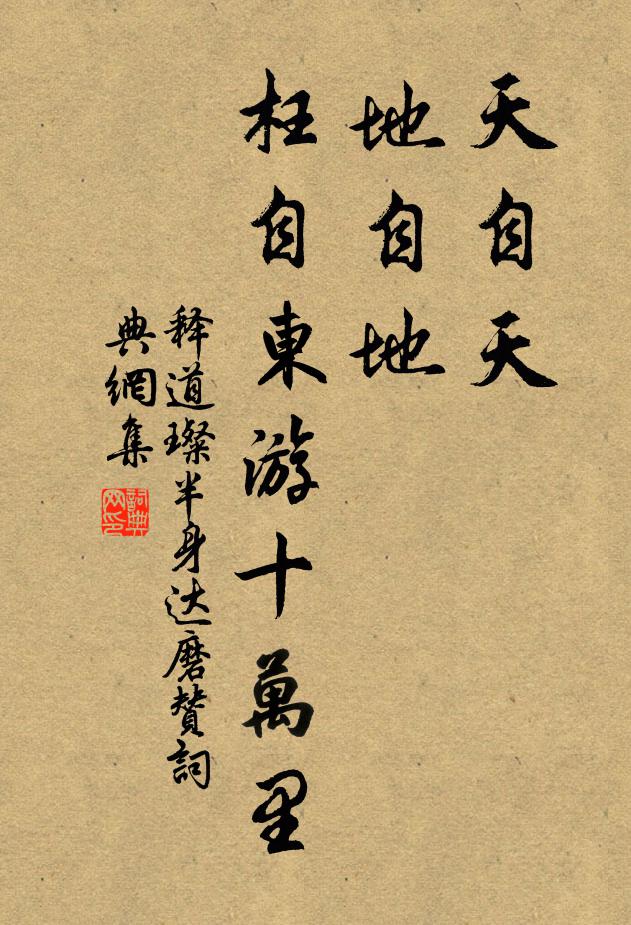 天自天
地自地
枉自東游十萬里
释道璨半身达磨贊詞
典網集
詞典网印